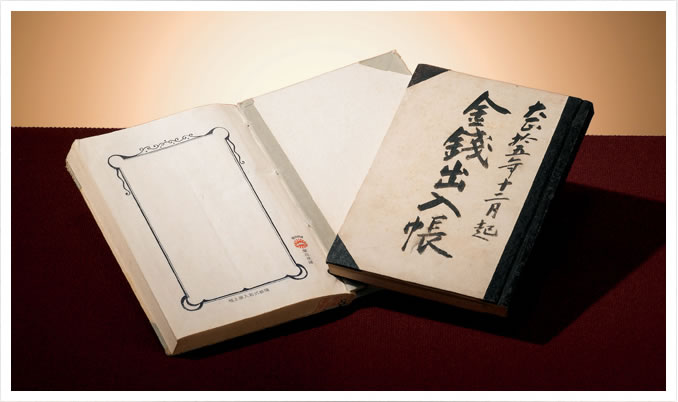 大正拾五年十二月起
金錢出入帳